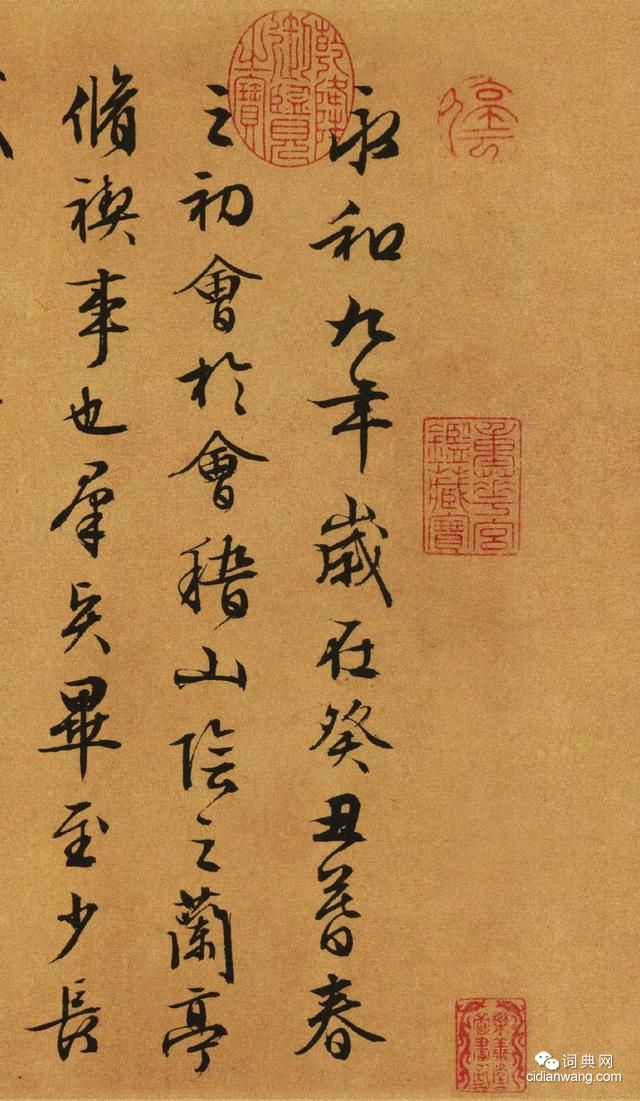 停雲
重華宮鑑藏寶
樂善堂圖書記
永和九年歲在癸丑暮春
乾隆御覽之寶
之初會於會稽山陰之蘭亭
脩禊事也羣賢畢至少長
词典网
cidianwang.com